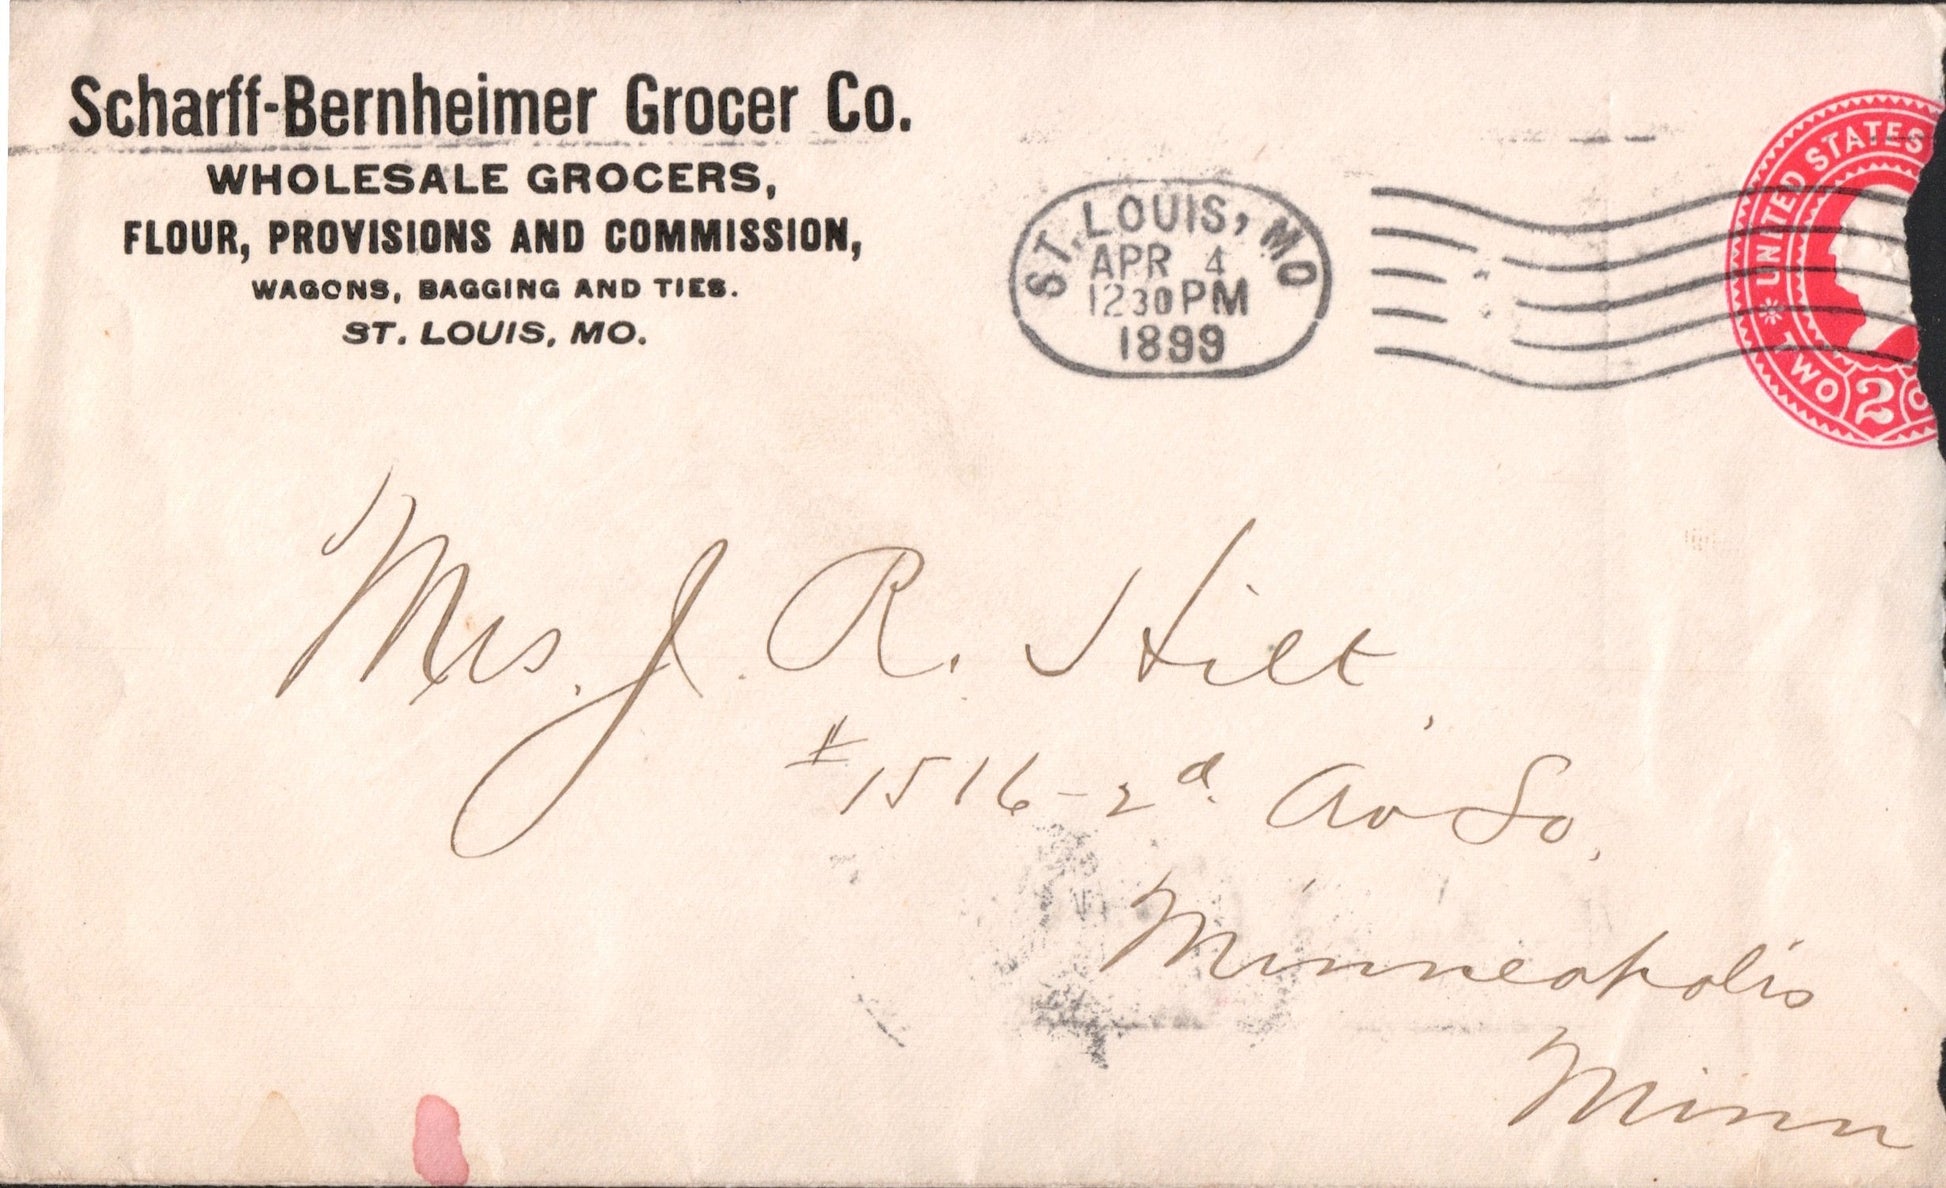 Scharff-Bernheimer Grocer Co.
WHOLESALE GROCERS,
FLOUR, PROVISIONS AND COMMISSION,
WAGONS, BAGGING AND TIES.
ST. LOUIS, MO.
ST. LOUIS, MO
APR 4
1230 PM
1899
UNITED STATES
TWO 2 C
Mrs. J. R. Hilt,
#1516-2d. Av So,
Minneapolis
Minn